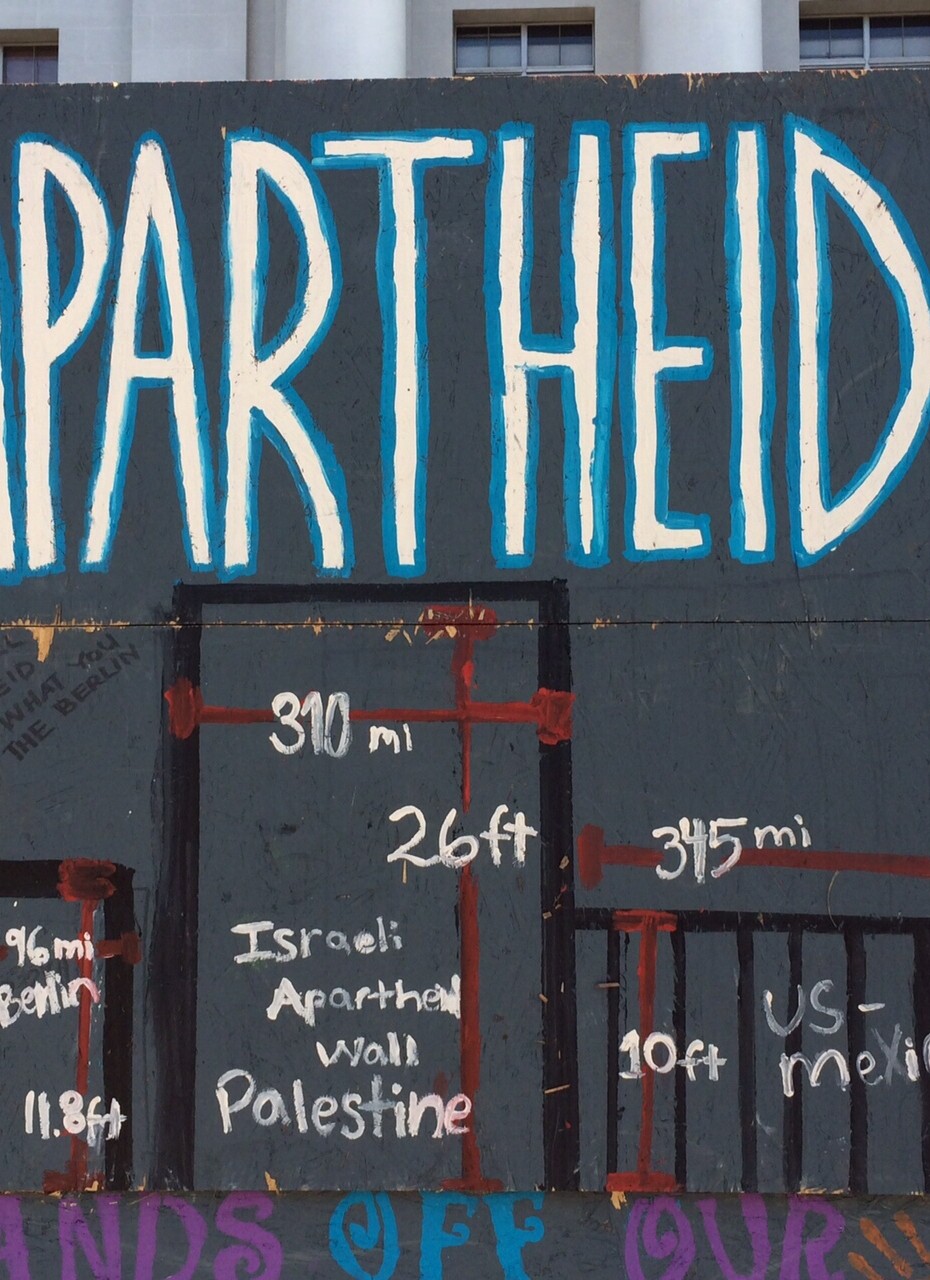 APARTHEID
EID
WHAT YOU
THE BERLIN
310 mi
26ft
345 mi
96mi
Berlin
11.8ft
Israeli
Apartheid
Wall
Palestine
10ft
US-
mexi
ANDS OFF OUR